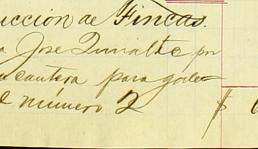 ucción de Fincas.
José Zurialte por
cantera para
l número 2 $